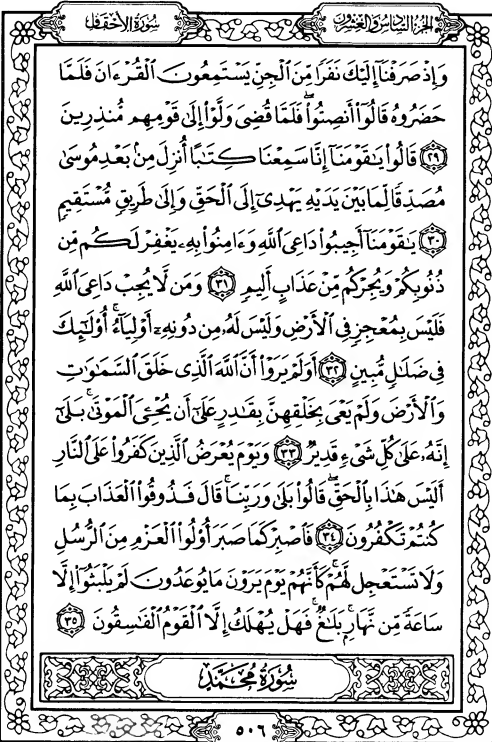 سُورَةُ الأَحْقَافِ الجُزْءُ السَّادِسُ وَالعِشْرُونَ
وَإِذْ صَرَفْنَآ إِلَيْكَ نَفَرًا مِّنَ ٱلْجِنِّ يَسْتَمِعُونَ ٱلْقُرْءَانَ فَلَمَّا
حَضَرُوهُ قَالُوٓا۟ أَنصِتُوا۟ ۖ فَلَمَّا قُضِىَ وَلَّوْا۟ إِلَىٰ قَوْمِهِم مُّنذِرِينَ
٢٩ قَالُوا۟ يَٰقَوْمَنَآ إِنَّا سَمِعْنَا كِتَٰبًا أُنزِلَ مِنۢ بَعْدِ مُوسَىٰ
مُصَدِّقًا لِّمَا بَيْنَ يَدَيْهِ يَهْدِىٓ إِلَى ٱلْحَقِّ وَإِلَىٰ طَرِيقٍ مُّسْتَقِيمٍ
٣٠ يَٰقَوْمَنَآ أَجِيبُوا۟ دَاعِىَ ٱللَّهِ وَءَامِنُوا۟ بِهِۦ يَغْفِرْ لَكُم مِّن
ذُنُوبِكُمْ وَيُجِرْكُم مِّنْ عَذَابٍ أَلِيمٍ ٣١ وَمَن لَّا يُجِبْ دَاعِىَ ٱللَّهِ
فَلَيْسَ بِمُعْجِزٍ فِى ٱلْأَرْضِ وَلَيْسَ لَهُۥ مِن دُونِهِۦٓ أَوْلِيَآءُ ۚ أُو۟لَٰٓئِكَ
فِى ضَلَٰلٍ مُّبِينٍ ٣٢ أَوَلَمْ يَرَوْا۟ أَنَّ ٱللَّهَ ٱلَّذِى خَلَقَ ٱلسَّمَٰوَٰتِ
وَٱلْأَرْضَ وَلَمْ يَعْىَ بِخَلْقِهِنَّ بِقَٰدِرٍ عَلَىٰٓ أَن يُحْۦِىَ ٱلْمَوْتَىٰ ۚ بَلَىٰٓ
إِنَّهُۥ عَلَىٰ كُلِّ شَىْءٍ قَدِيرٌ ٣٣ وَيَوْمَ يُعْرَضُ ٱلَّذِينَ كَفَرُوا۟ عَلَى ٱلنَّارِ
أَلَيْسَ هَٰذَا بِٱلْحَقِّ ۖ قَالُوا۟ بَلَىٰ وَرَبِّنَا ۚ قَالَ فَذُوقُوا۟ ٱلْعَذَابَ بِمَا
كُنتُمْ تَكْفُرُونَ ٣٤ فَٱصْبِرْ كَمَا صَبَرَ أُو۟لُوا۟ ٱلْعَزْمِ مِنَ ٱلرُّسُلِ
وَلَا تَسْتَعْجِل لَّهُمْ ۚ كَأَنَّهُمْ يَوْمَ يَرَوْنَ مَا يُوعَدُونَ لَمْ يَلْبَثُوٓا۟ إِلَّا
سَاعَةً مِّن نَّهَارٍۭ ۚ بَلَٰغٌ ۚ فَهَلْ يُهْلَكُ إِلَّا ٱلْقَوْمُ ٱلْفَٰسِقُونَ ٣٥
سُورَةُ مُحَمَّدٍ
٥٠٦